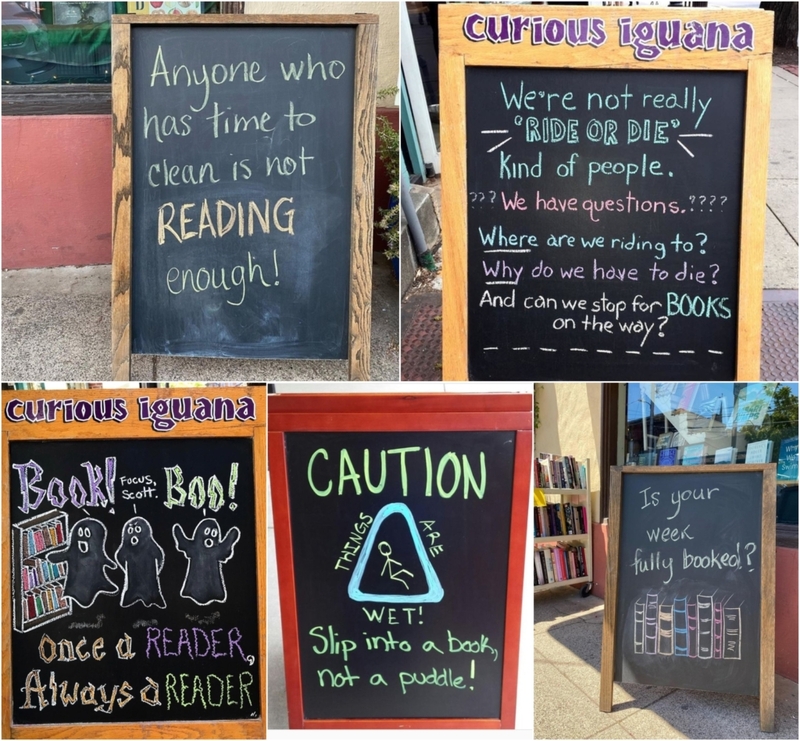 Anyone who
has time to
clean is not
READING
enough!
curious iguana
We're not really
"RIDE OR DIE"
Kind of people.
??? We have questions.????
Where are we riding to?
Why do we have to die?
And can we stop for BOOKS
on the way?
curious iguana
Book! Focus, Scott. Boo!
Once a READER,
Always a READER
CAUTION
THINGS ARE
WET!
Slip into a book,
not a puddle!
Is your
week
fully booked?